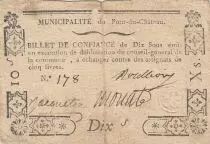 MUNICIPALITÉ du Pont-du-Château.
BILLET DE CONFIANCE de Dix Sous émis
en exécution de délibération du conseil-général de
la commune, à échanger contre des assignats de
cinq livres.
N.° 178
10 S
X S
Dix s